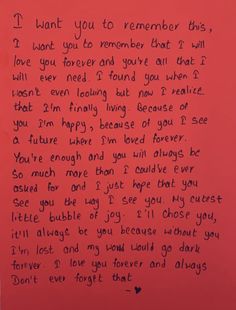 I want you to remember this,
I want you to remember that I will
love you forever and you're all that I
will ever need. I found you when I
wasn't even looking but now I realize
that I'm finally living. Because of
you I'm happy, because of you I see
a future where I'm loved forever.
You're enough and you will always be
so much more than I could've ever
asked for and I just hope that you
see you the way I see you. My cutest
little bubble of joy. I'll chose you,
it'll always be you because without you
I'm lost and my world would go dark
forever. I love you forever and always
Don't ever forget that
- ♥